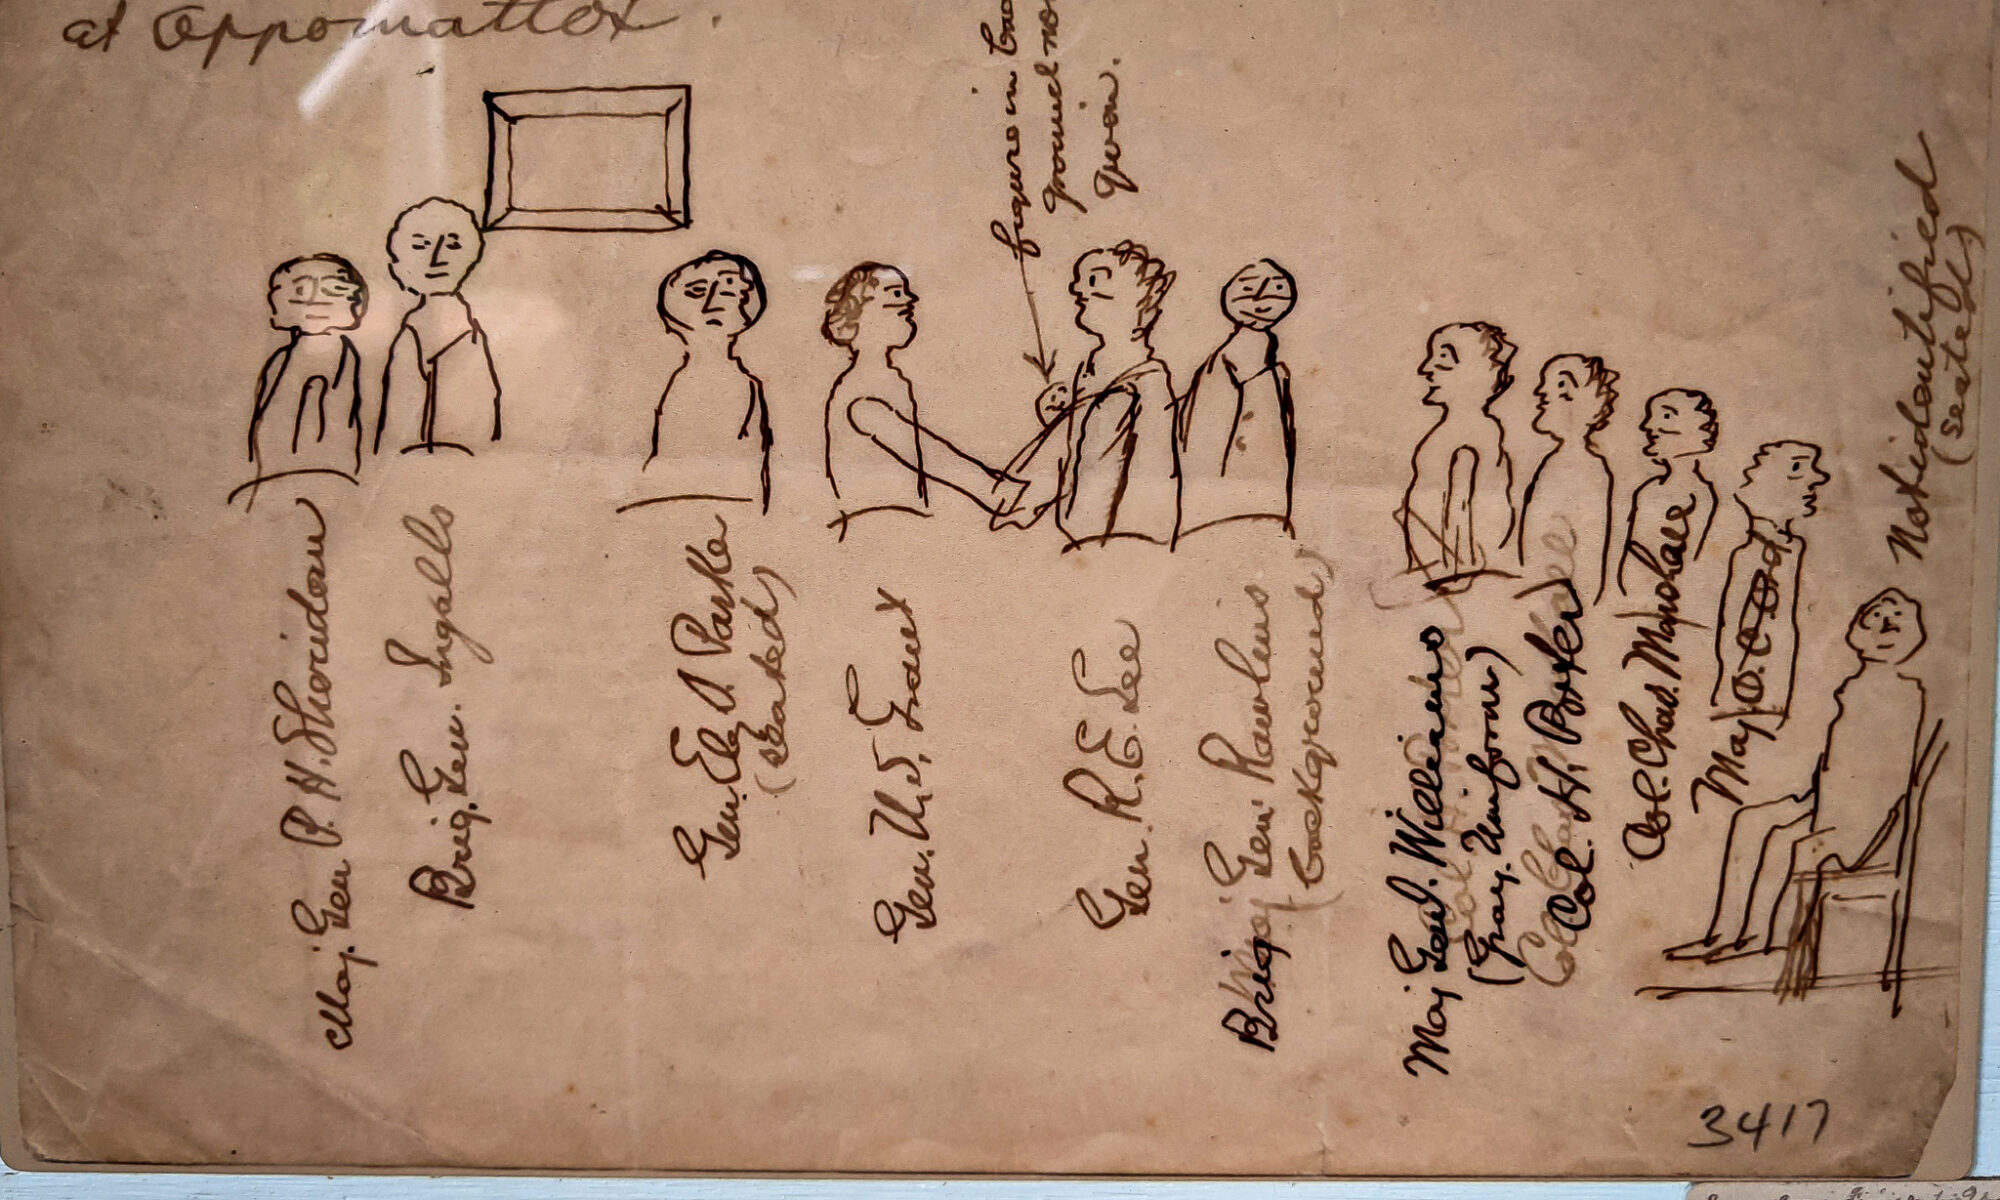 at Appomattox.
figure in
ground no
given.
Maj. Gen P. H. Sheridan
Brig. Gen. Ingalls
Gen. Ely S. Parker
(seated)
Gen. U. S. Grant
Gen. R. E. Lee
Brig Gen Rawlins
(background)
Maj Gen. Williams
(Gray. Uniform)
Col. H. Porter
Col. Chas. Marshall
Maj
Not identified
(seated)
3417